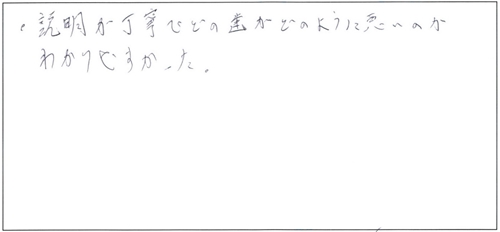 ・説明が丁寧でどの歯がどのように悪いのか
わかりやすかった。